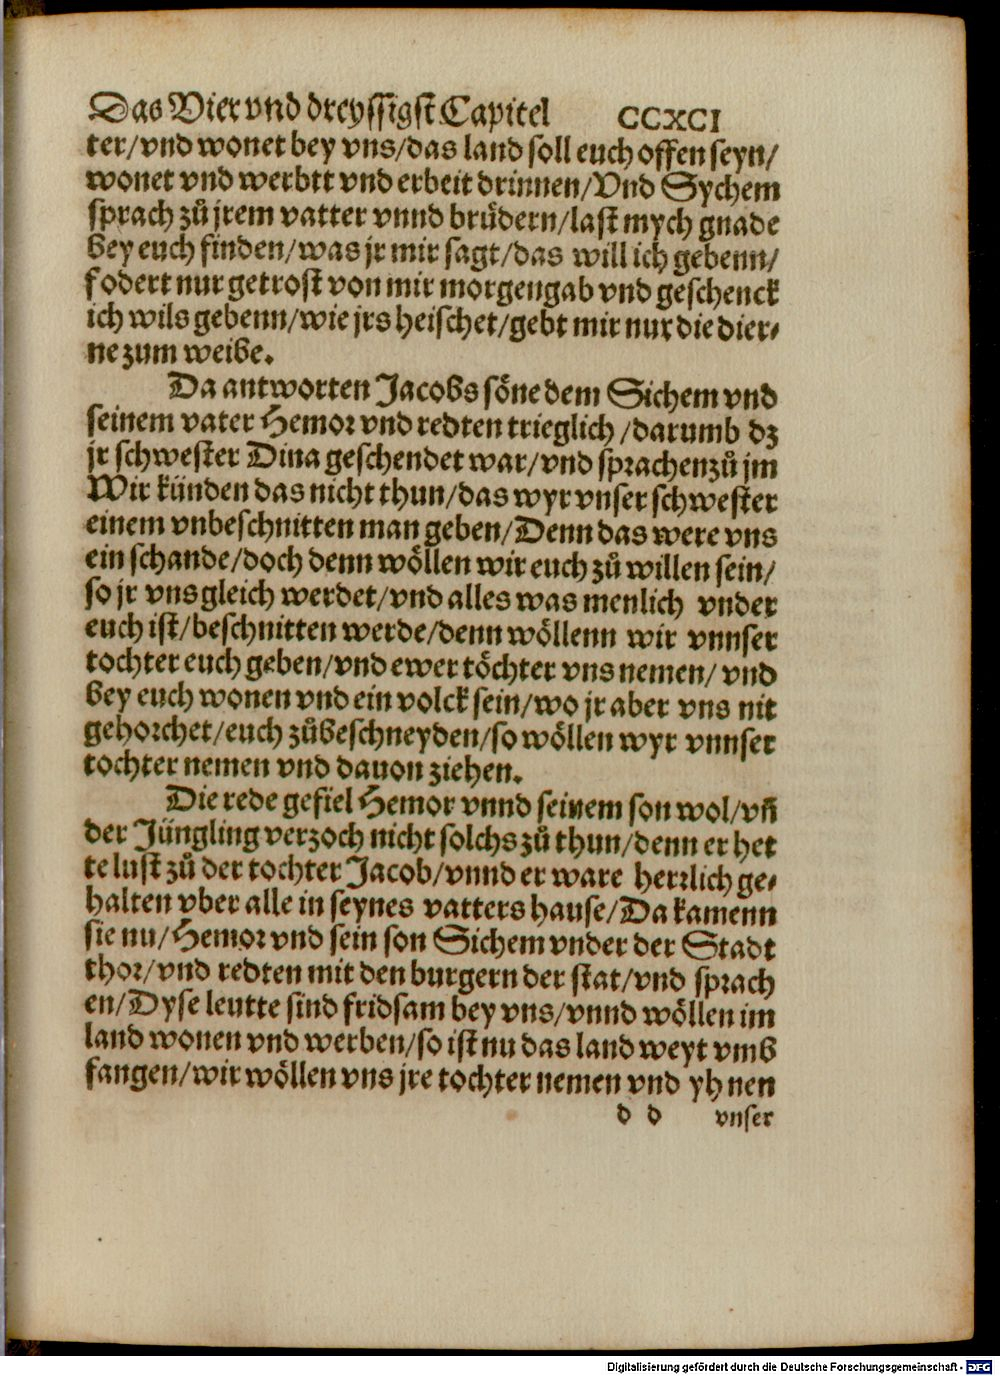 Das Vier vnd dreyssigst Capitel CCXCI
ter/vnd wonet bey vns/das land soll euch offen seyn/
wonet vnd werbtt vnd erbeit drinnen/Vnd Sychem
sprach zů jrem vatter vnnd brůdern/last mych gnade
bey euch finden/was jr mir sagt/das will ich gebenn/
fodert nur getrost von mir morgengab vnd geschenck
ich wils gebenn/wie jrs heischet/gebt mir nur die dier⸗
ne zum weibe.
Da antworten Jacobs söne dem Sichem vnd
seinem vater Hemor vnd redten trieglich/darumb dz
jr schwester Dina geschendet war/vnd sprachenzů jm
Wir künden das nicht thun/das wyr vnser schwester
einem vnbeschnitten man geben/Denn das were vns
ein schande/doch denn wöllen wir euch zů willen sein/
so jr vns gleich werdet/vnd alles was menlich vnder
euch ist/beschnitten werde/denn wöllenn wir vnnser
tochter euch geben/vnd ewer töchter vns nemen/vnd
bey euch wonen vnd ein volck sein/wo jr aber vns nit
gehorchet/euch zůbeschneyden/so wöllen wyr vnnser
tochter nemen vnd dauon ziehen.
Die rede gefiel Hemor vnnd seinem son wol/vñ
der Jüngling verzoch nicht solchs zů thun/denn er het
te lust zů der tochter Jacob/vnnd er ware herrlich ge⸗
halten vber alle in seynes vatters hause/Da kamenn
sie nu/Hemor vnd sein son Sichem vnder der Stadt
thor/vnd redten mit den burgern der stat/vnd sprach
en/Dyse leutte sind fridsam bey vns/vnnd wöllen im
land wonen vnd werben/so ist nu das land weyt vmb
fangen/wir wöllen vns jre tochter nemen vnd yhnen
d d vnser
Digitalisierung gefördert durch die Deutsche Forschungsgemeinschaft - DFG